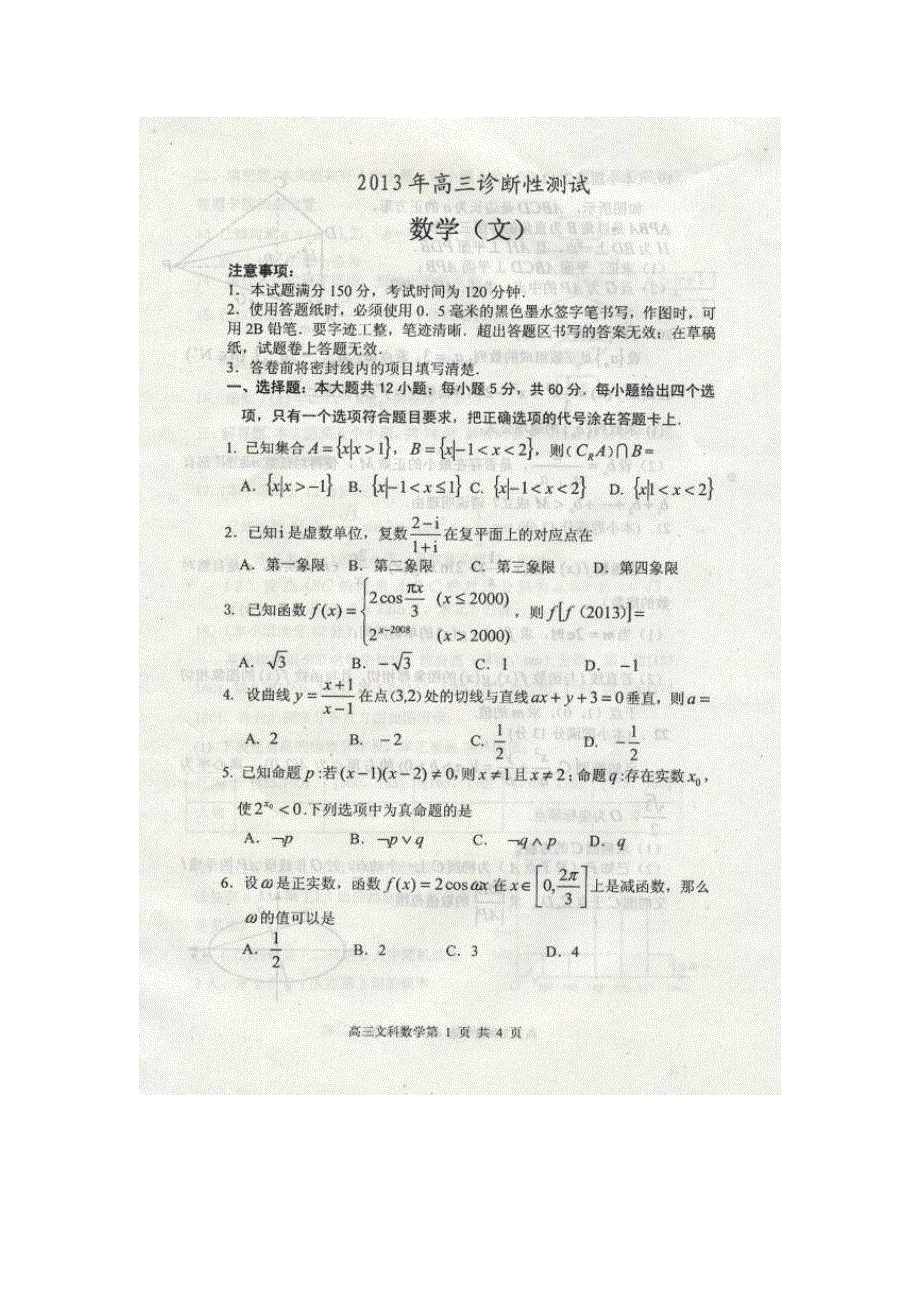 2013年高三诊断性测试
数学（文）
注意事项：
1．本试题满分150分，考试时间为120分钟．
2．使用答题纸时，必须使用0．5毫米的黑色墨水签字笔书写，作图时，可
用2B铅笔．要字迹工整，笔迹清晰．超出答题区书写的答案无效；在草稿
纸，试题卷上答题无效．
3．答卷前将密封线内的项目填写清楚．
一、选择题：本大题共12小题；每小题5分，共60分．每小题给出四个选
项，只有一个选项符合题目要求，把正确选项的代号涂在答题卡上．
1．已知集合A={x|x>1}，B={x|-1<x<2}，则( C_R A)∩B=
A．{x|x>-1} B．{x|-1<x≤1} C．{x|-1<x<2} D．{x|1<x<2}
2．已知i是虚数单位，复数(2-i)/(1+i)在复平面上的对应点在
A．第一象限 B．第二象限 C．第三象限 D．第四象限
3．已知函数f(x)={2cos(πx/3) (x≤2000) 2^(x-2008) (x>2000)，则f[f（2013)]=
A．√3 B．-√3 C．1 D．-1
4．设曲线y=(x+1)/(x-1)在点(3,2)处的切线与直线ax+y+3=0垂直，则a=
A．2 B．-2 C．1/2 D．-1/2
5．已知命题p:若(x-1)(x-2)≠0,则x≠1且x≠2；命题q:存在实数x₀，
使2^(x₀)<0.下列选项中为真命题的是
A．¬p B．¬p∨q C．¬q∧p D．q
6．设ω是正实数，函数f(x)=2cosωx在x∈[0, 2π/3]上是减函数，那么
ω的值可以是
A．1/2 B．2 C．3 D．4
高三文科数学第 1 页 共 4 页